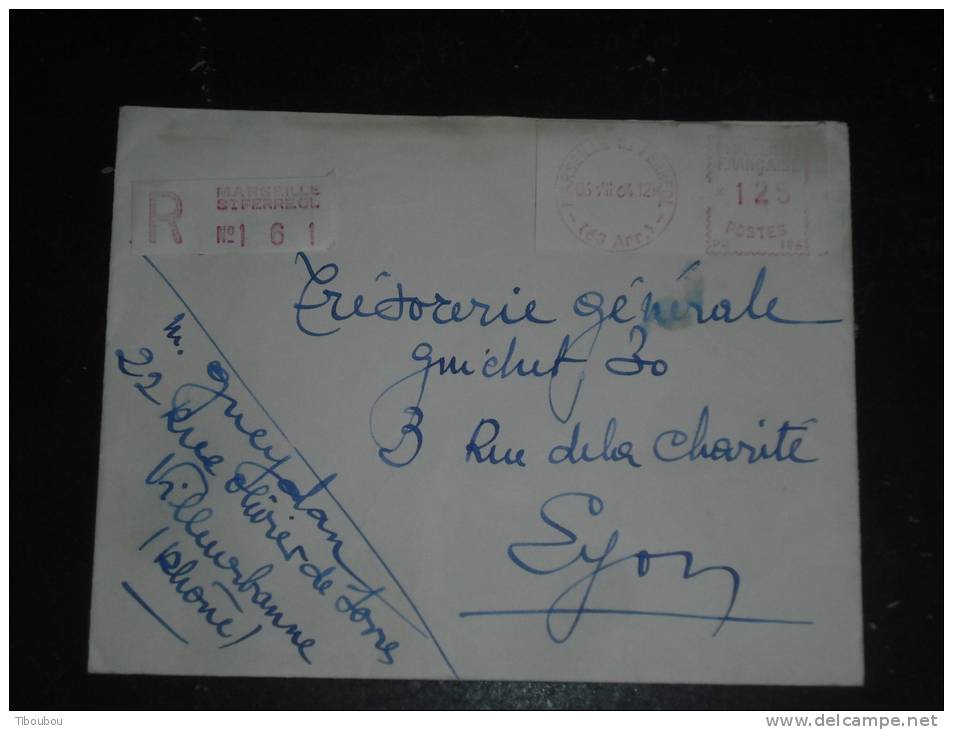 R
MARSEILLE
ST FERREOL
Nº1 6 1
MARSEILLE ST FERREOL
03 VII 64 12H
(6e Arr.)
FRANÇAISE
125
POSTES
Trésorerie générale
guichet 30
3 Rue de la Charité
Lyon
M. Gueydan
22 Rue Olivier de Serres
Villeurbanne
(Rhône)
Tiboubou
www.delcampe.net